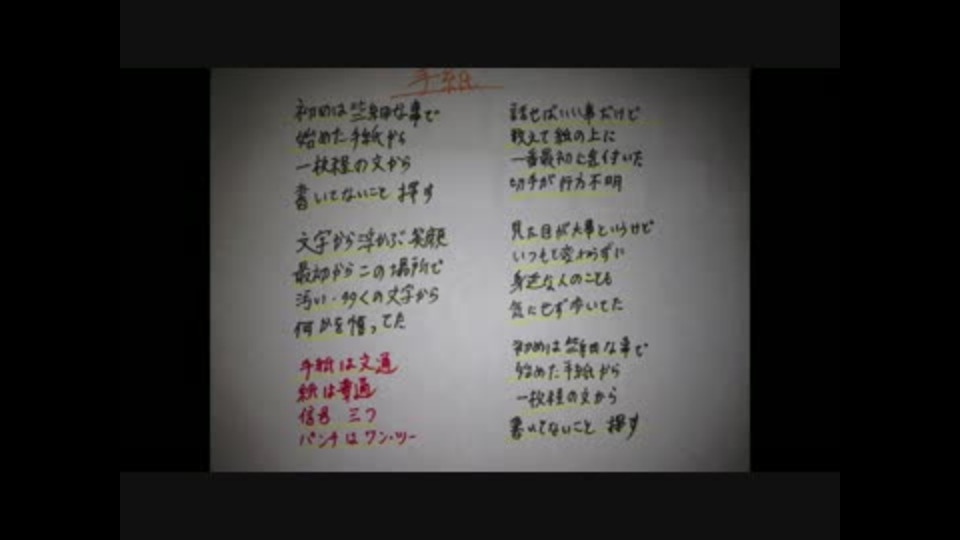 手紙
初めは些細な事で
始めた手紙から
一枚程の文から
書いてないこと 探す
文字から浮かぶ笑顔
最初からこの場所で
汚い・多くの文字から
何かを悟ってた
手紙は文通
紙は普通
信号 三つ
パンチはワン・ツー
話せばいい事だけど
敢えて紙の上に
一番最初に気付いた
切手が行方不明
見た目が大事というけど
いつもと変わらずに
身近な人のことも
気にせず歩いてた
初めは些細な事で
始めた手紙から
一枚程の文から
書いてないこと 探す